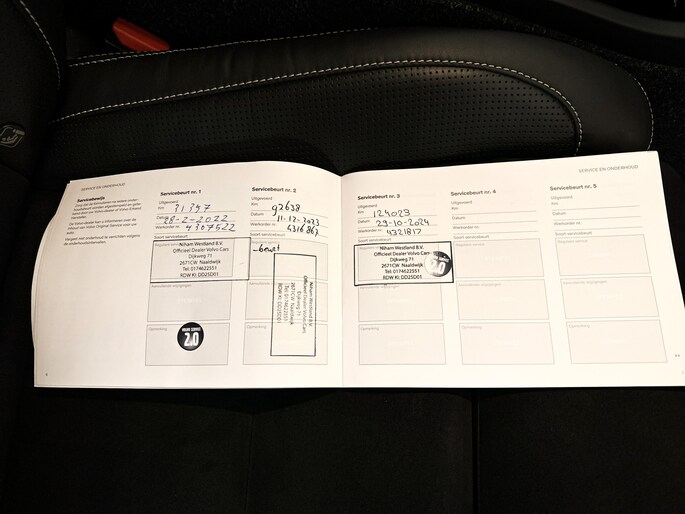 SERVICE EN ONDERHOUD
Servicebewijs
Servicebeurt nr. 1
Uitgevoerd
Km
31397
Datum
28-2-2022
Werkorder nr.
4307522
Soort servicebeurt
Niham Westland B.V.
Officieel Dealer Volvo Cars
Dijkweg 71
2671CW Naaldwijk
Tel: 0174622551
RDW KI: DD25D01
Opmerking
2.0
Servicebeurt nr. 2
Uitgevoerd
Km
92638
Datum
11-12-2023
Werkorder nr.
4316867
Soort servicebeurt
-beurt
Niham Westland B.V.
Officieel Dealer Volvo Cars
Dijkweg 71
2671CW Naaldwijk
Tel: 0174622551
RDW KI: DD25D01
Opmerking
SERVICE EN ONDERHOUD
Servicebeurt nr. 3
Uitgevoerd
Km
124023
Datum
29-10-2024
Werkorder nr.
4321817
Soort servicebeurt
Niham Westland B.V.
Officieel Dealer Volvo Cars
Dijkweg 71
2671CW Naaldwijk
Tel: 0174622551
RDW KI: DD25D01
2.0
Opmerking
Servicebeurt nr. 4
Uitgevoerd
Km
Datum
Werkorder nr.
Soort servicebeurt
Opmerking
Servicebeurt nr. 5
Uitgevoerd
Km
Datum
Werkorder nr.
Soort servicebeurt
Opmerking